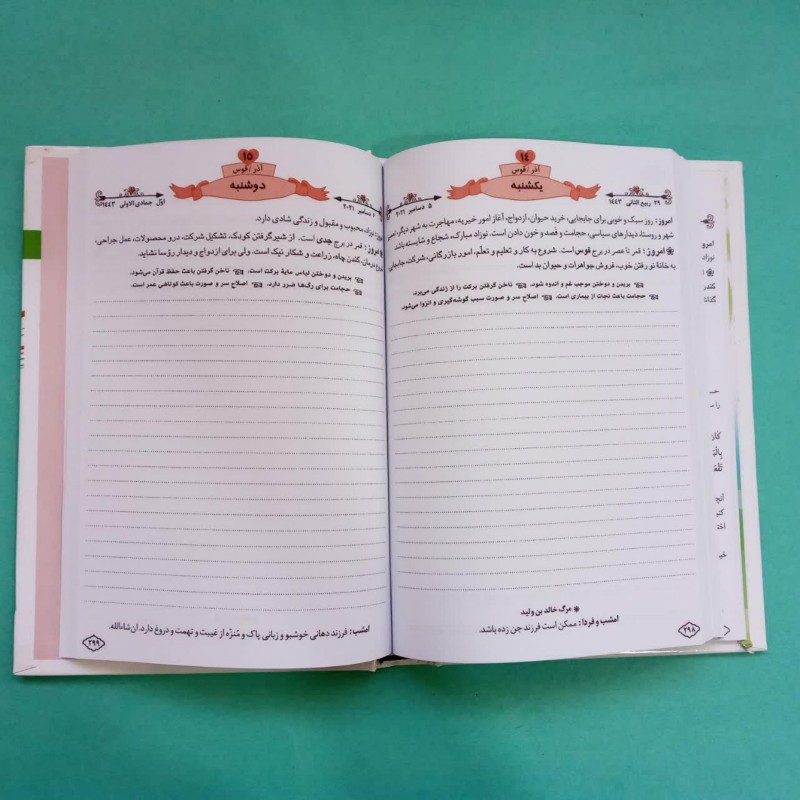 ۱۴
آذر / قوس
یکشنبه
۲۹ ربیع الثانی ۱۴۴۳
۵ دسامبر ۲۰۲۱
امروز: روز سبک و خوبی برای جابجایی، خرید حیوان، ازدواج، آغاز امور خیریه، مهاجرت به شهر دیگر، تعمیر
شهر و روستا، دیدارهای سیاسی، حجامت و فصد و خون دادن است. نوزاد مبارک، شجاع و شایسته باشد.
امروز: قمر تا عصر در برج قوس است. شروع به کار و تعلیم و تعلّم، امور بازرگانی، شرکت، جابجایی
به خانهٔ نو رفتن خوب، فروش جواهرات و حیوان بد است.
بریدن و دوختن موجب غم و اندوه شود. ناخن گرفتن برکت را از زندگی می‌برد.
حجامت باعث نجات از بیماری است. اصلاح سر و صورت سبب گوشه‌گیری و انزوا می‌شود.
مرگ خالد بن ولید
امشب و فردا: ممکن است فرزند جن زده باشد.
۲۹۸
۱۵
آذر / قوس
دوشنبه
اول جمادی الاولی ۱۴۴۳
۶ دسامبر ۲۰۲۱
محبوب و مقبول و زندگی شادی دارد.
امروز: قمر در برج جدی است. از شیر گرفتن کودک، تشکیل شرکت، درو محصولات، عمل جراحی،
درمان، کندن چاه، زراعت و شکار نیک است. ولی برای ازدواج و دیدار رؤسا نشاید.
بریدن و دوختن لباس مایهٔ برکت است. ناخن گرفتن باعث حفظ قرآن می‌شود.
حجامت برای رگ‌ها ضرر دارد. اصلاح سر و صورت باعث کوتاهی عمر است.
امشب: فرزند دهانی خوشبو و زبانی پاک و مُنزّه از غیبت و تهمت و دروغ دارد. ان‌شاءالله.
۲۹۹